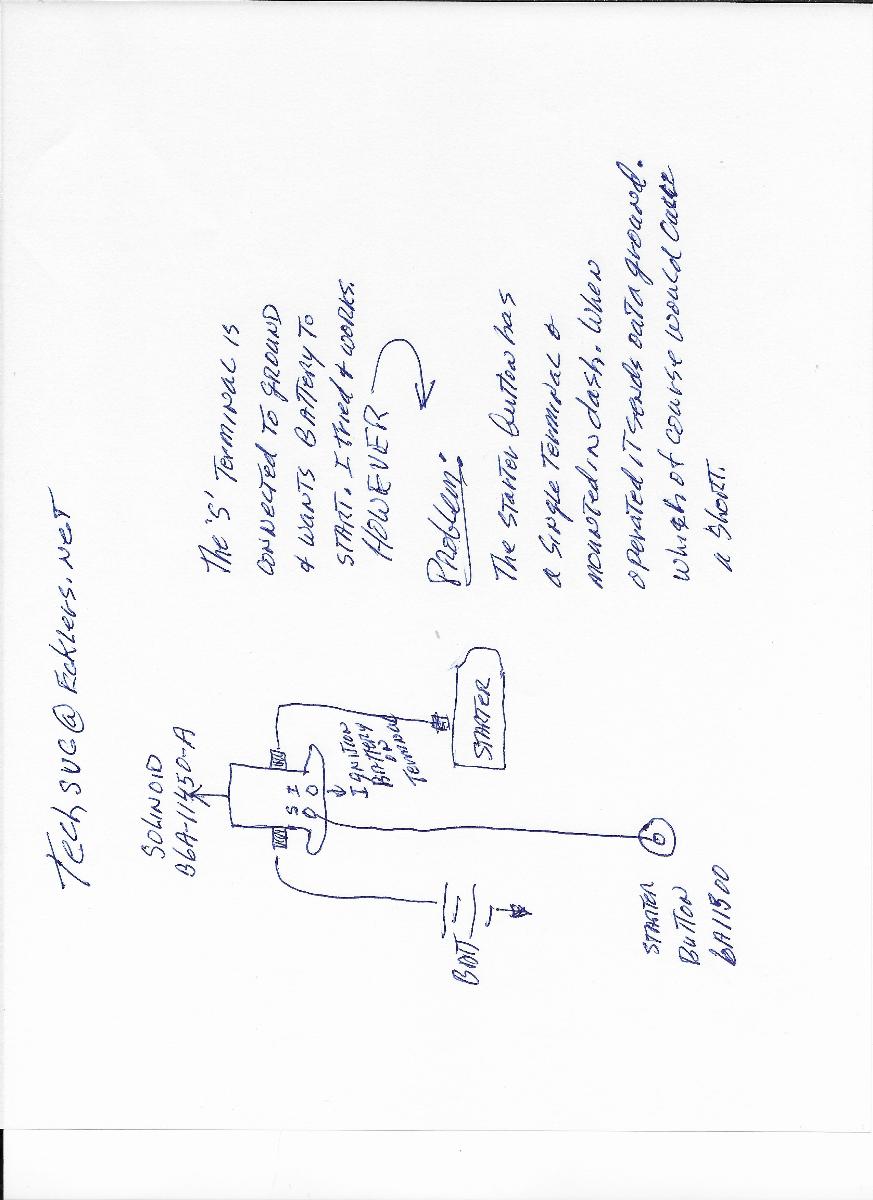 TechSVC@Ecklers.net
SOLINOID
B6A-11450-A
S I
IGNITION
BATTERY
ON
Terminal
STARTER
BATT
STARTER
BUTTON
The 'S' TERMINAL IS
CONNECTED TO GROUND
& WANTS BATTERY TO
START. I tried & WORKS.
HOWEVER
Problem:
The starter button has
a single terminal &
mounted in dash. When
operated it sends out a ground.
which of course would cause
a short.